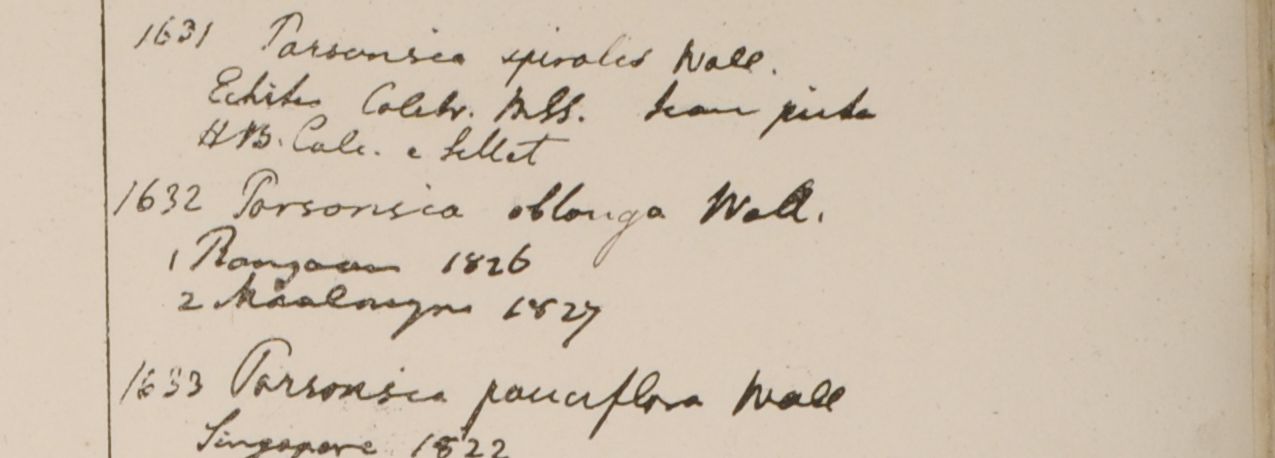 1631 Parsonsia spiralis Wall.
Echites Colebr. MSS. icon picta
HB. Calc. e Sillet
1632 Parsonsia oblonga Wall.
1 Rangoon 1826
2 Moalmayne 1827
1633 Parsonsia pauciflora Wall
Singapore 1822